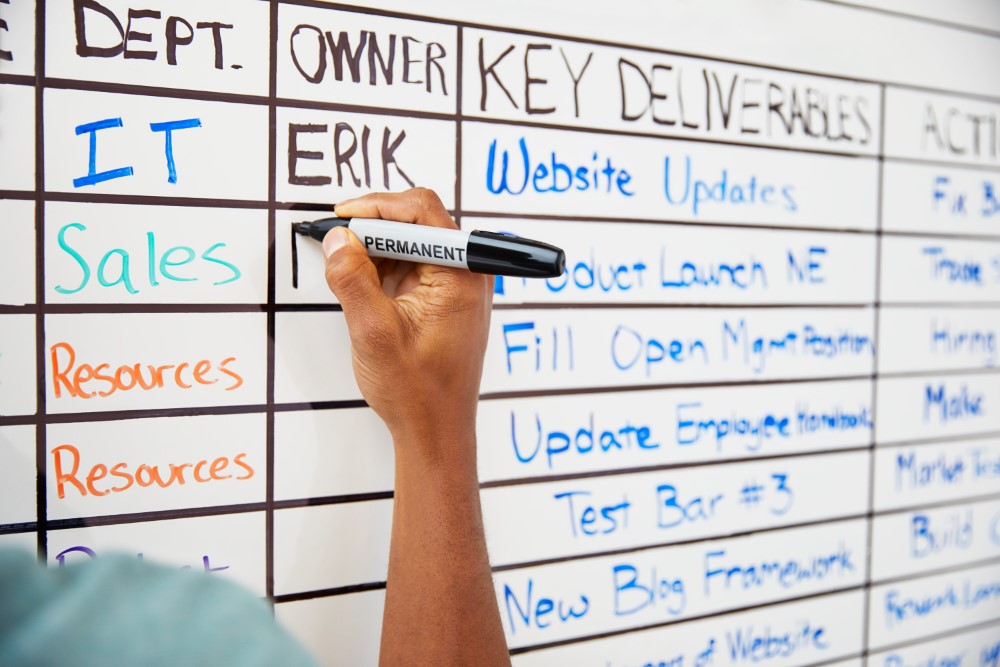 DEPT. OWNER KEY DELIVERABLES
IT ERIK Website Updates Fix
PERMANENT
Sales Launch NE Trade
Resources Fill Open Mgmt Position Hiring
Resources Update Employee Handbook Make
Test Bar #3 Market
New Blog Framework Build
of Website